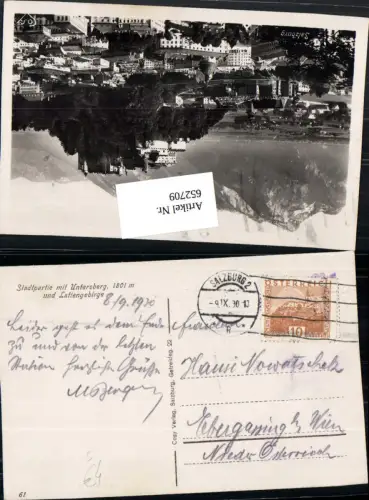 Salzburg
Artikel Nr.
652709
Stadtpartie mit Untersberg, 1801 m
und Lattengebirge
8/9. 1930
Leider geht es dem Ende
zu und von der letzten
Station herzliche Grüße
SALZBURG 2
-9.IX.30.10
ÖSTERREICH
10
Hansi Nowatschek
Ebergassing b/ Wien
Nieder Österreich
Copy Verlag, Salzburg, Getreideg. 22
61